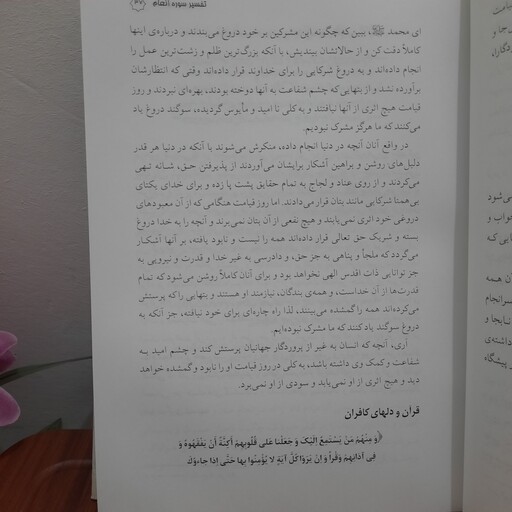 تفسیر سوره انعام
ای محمد ﷺ، ببین که چگونه این مشرکین بر خود دروغ می‌بندند و درباره‌ی اینها
کاملاً دقت کن و از حالاتشان بیندیش، با آنکه بزرگ‌ترین ظلم و زشت‌ترین عمل را
انجام داده‌اند و به دروغ شرکایی را برای خداوند قرار داده‌اند وقتی که انتظارشان
برآورده نشد و از بتهایی‌که چشم شفاعت به آنها دوخته بودند، بهره‌ای نبردند و روز
قیامت هیچ اثری از آنها نیافتند و به‌کلی نا امید و مأیوس گردیده، سوگند دروغ یاد
می‌کنند که ما هرگز مشرک نبودیم.
در واقع آنان آنچه در دنیا انجام داده، منکرش می‌شوند با آنکه در دنیا هر قدر
دلیل‌های روشن و براهین آشکار برایشان می‌آوردند از پذیرفتن حق، شانه تهی
می‌کردند و از روی عناد و لجاج به تمام حقایق پشت پا زده و برای خدای یکتای
بی‌همتا شرکایی مانند بتان قرار می‌دادند. اما روز قیامت هنگامی‌که از آن معبودهای
دروغی خود اثری نمی‌یابند و هیچ نفعی از آن بتان نمی‌برند و آنچه را به خدا دروغ
بسته و شریک حق تعالی قرار داده‌اند همه را نیست و نابود یافته، بر آنها آشکار
می‌گردد که ملجأ و پناهی به جز حق، و دادرسی به غیر خدا و قدرت و نیرویی به
جز توانایی ذات اقدس الهی نخواهد بود و برای آنان کاملاً روشن می‌شود که تمام
قدرت‌ها از آن خداست، و همه‌ی بندگان، نیازمند او هستند و بتهایی را که پرستش
می‌کرده‌اند همه را گمشده می‌بینند، لذا راه چاره‌ای برای خود نیافته، جز آنکه به
دروغ سوگند یاد کنند که ما مشرک نبوده‌ایم.
آری، آنچه که انسان به غیر از پروردگار جهانیان پرستش کند و چشم امید به
شفاعت و کمک وی داشته باشد، به‌کلی در روز قیامت او را نابود و گمشده خواهد
دید و هیچ اثری از او نمی‌یابد و سودی از او نمی‌برد.
قرآن و دلهای کافران
﴿وَ مِنْهُمْ مَنْ یَسْتَمِعُ إِلَیْکَ وَ جَعَلْنا عَلى قُلُوبِهِمْ أَکِنَّةً أَنْ یَفْقَهُوهُ وَ
فِی آذانِهِمْ وَقْراً وَ إِنْ یَرَوْا کُلَّ آیَةٍ لا یُؤْمِنُوا بِها حَتَّى إِذا جاءُوکَ